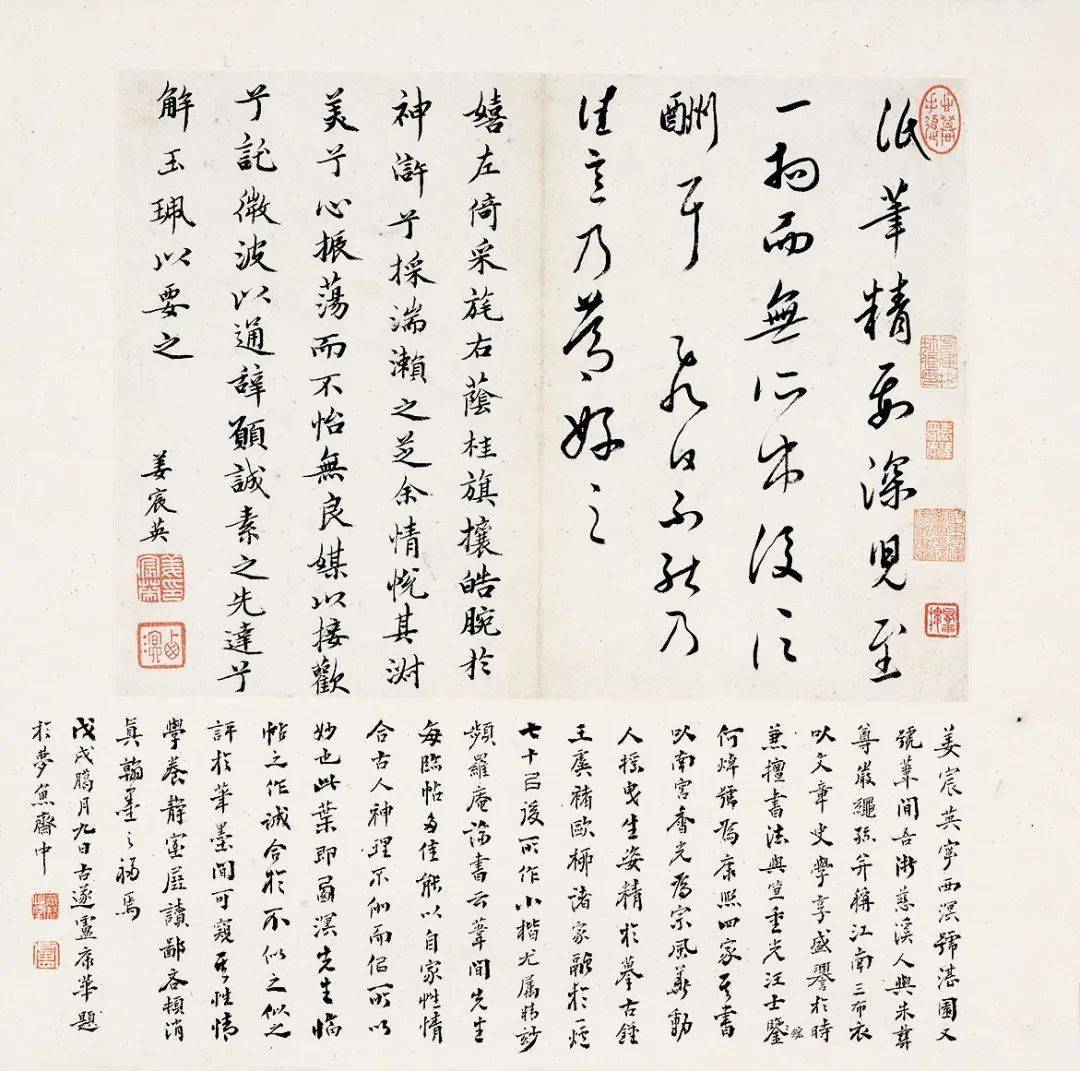 筆精要深至
一而無所求後之
酬耳 不能乃
佳意乃好之
嬉左倚采旄右蔭桂旗攘皓腕於
神滸兮採湍瀨之芝余情悅其淑
美兮心振蕩而不怡無良媒以接歡
兮託微波以通辭願誠素之先達兮
解玉珮以要之
姜宸英
姜宸英字西溟號湛園又
號葦間吾浙慈溪人與朱彝
尊嚴繩孫并稱江南三布衣
以文章史學享盛譽於時
兼擅書法與笪重光汪士鋐
何焯號為康熙四家其書
以南宮香光為宗風動
人搖曳生姿精於摹古鍾
王虞褚歐柳諸家融於一爐
七十以後所作小楷尤屬精妙
頻羅庵論書云葦間先生
每臨帖多佳能以自家性情
合古人神理不似而似所以
妙也此葉即西溟先生臨
帖之作誠合於不似之似之
評於筆墨間可窺其性情
學養靜室展讀鄙吝頓消
真翰墨之福焉
戊戌臘月九日古遂盧康華題
於夢魚齋中